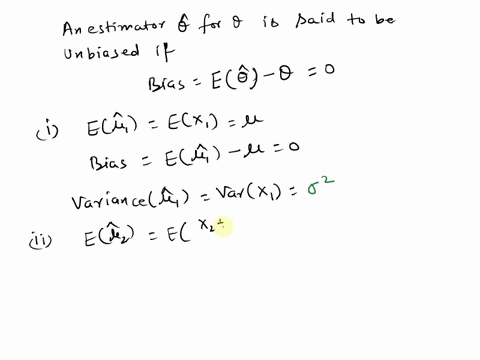 An estimator θ̂ for θ is said to be
Unbiased if
Bias = E(θ̂) - θ = 0
(i) E(μ̂₁) = E(X₁) = μ
Bias = E(μ̂₁) - μ = 0
Variance(μ̂₁) = Var(X₁) = σ²
(ii) E(μ̂₂) = E( X₂ +